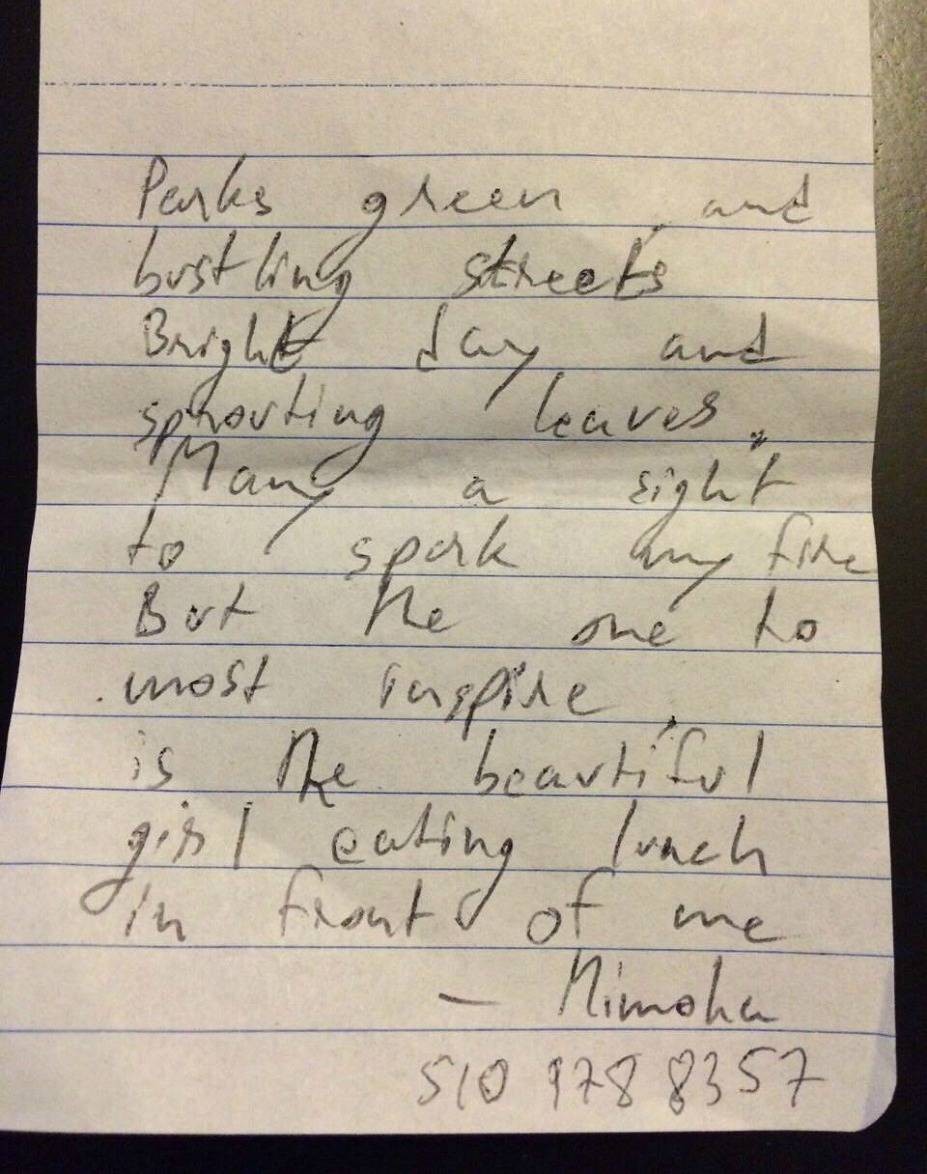 Parks green and
bustling streets
Bright day and
sprouting leaves.
Many a sight
to spark my fire
But the one to
most inspire
is the beautiful
girl eating lunch
in front of me
—
510 978 8357